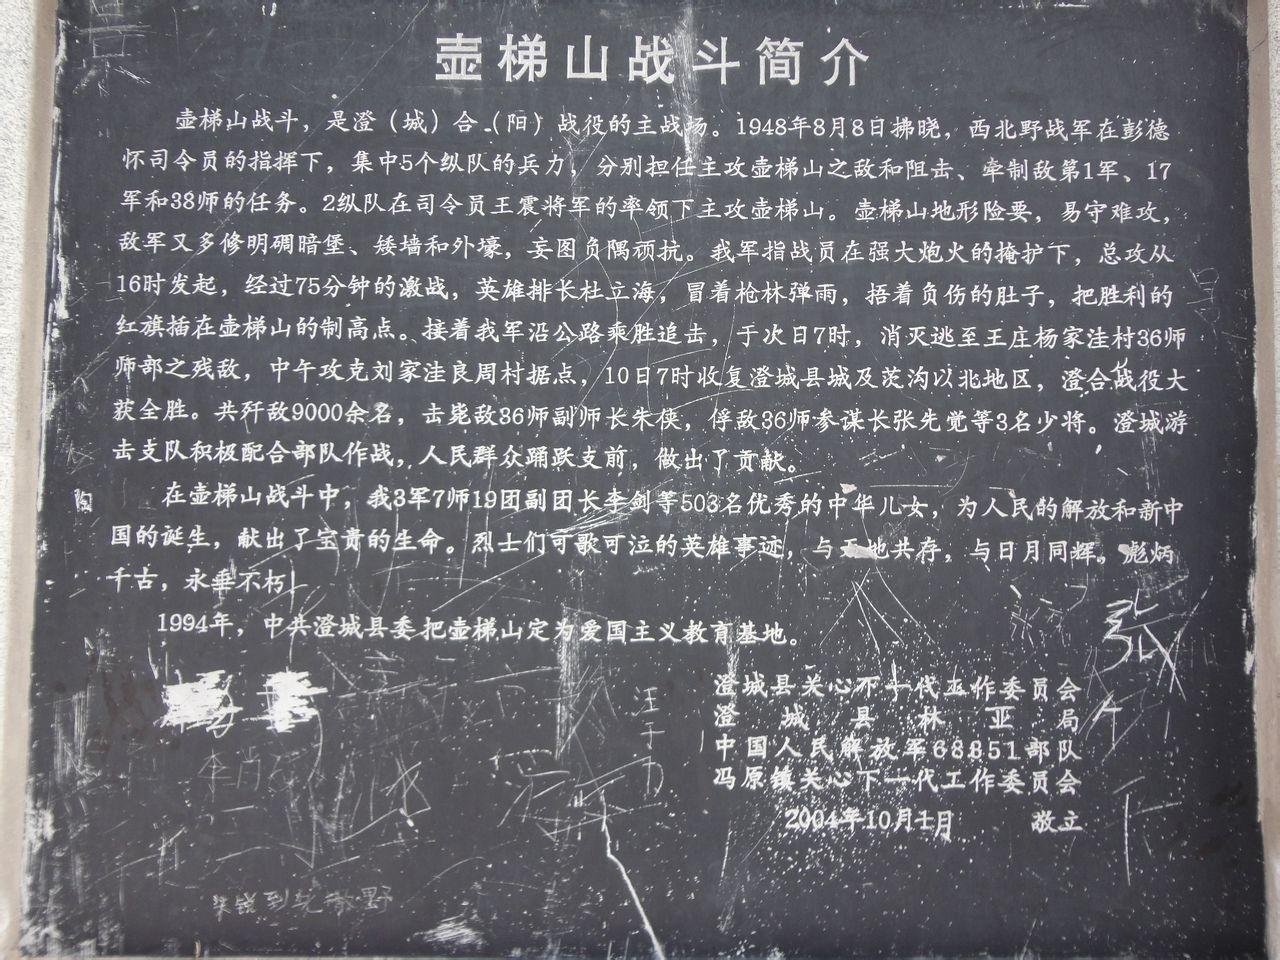 壶梯山战斗简介
壶梯山战斗，是澄（城）合（阳）战役的主战场。1948年8月8日拂晓，西北野战军在彭德
怀司令员的指挥下，集中5个纵队的兵力，分别担任主攻壶梯山之敌和阻击、牵制敌第1军、17
军和38师的任务。2纵队在司令员王震将军的率领下主攻壶梯山。壶梯山地形险要，易守难攻，
敌军又多修明碉暗堡、矮墙和外壕，妄图负隅顽抗。我军指战员在强大炮火的掩护下，总攻从
16时发起，经过75分钟的激战，英雄排长杜立海，冒着枪林弹雨，捂着负伤的肚子，把胜利的
红旗插在壶梯山的制高点。接着我军沿公路乘胜追击，于次日7时，消灭逃至王庄杨家洼村36师
师部之残敌，中午攻克刘家洼良周村据点，10日7时收复澄城县城及茨沟以北地区，澄合战役大
获全胜。共歼敌9000余名，击毙敌36师副师长朱侠，俘敌36师参谋长张先觉等3名少将。澄城游
击支队积极配合部队作战，人民群众踊跃支前，做出了贡献。
在壶梯山战斗中，我3军7师19团副团长李剑等503名优秀的中华儿女，为人民的解放和新中
国的诞生，献出了宝贵的生命。烈士们可歌可泣的英雄事迹，与天地共存，与日月同辉，彪炳
千古，永垂不朽！
1994年，中共澄城县委把壶梯山定为爱国主义教育基地。
澄城县关心下一代工作委员会
澄城县林业局
中国人民解放军68851部队
冯原镇关心下一代工作委员会
2004年10月十月 敬立
张